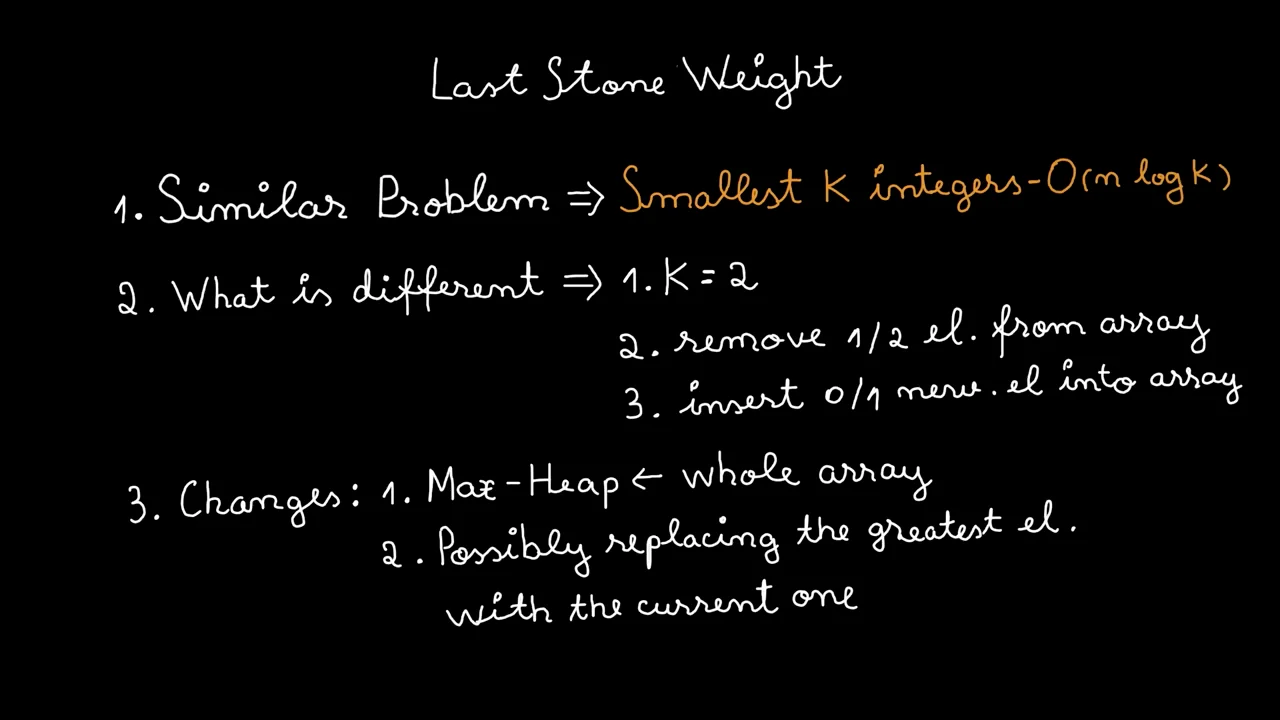 Last Stone Weight
1. Similar Problem ⇒ Smallest K integers - O(n log K)
2. What is different ⇒ 1. K = 2
2. remove 1/2 el. from array
3. insert 0/1 new. el into array
3. Changes: 1. Max-Heap ← whole array
2. Possibly replacing the greatest el.
with the current one